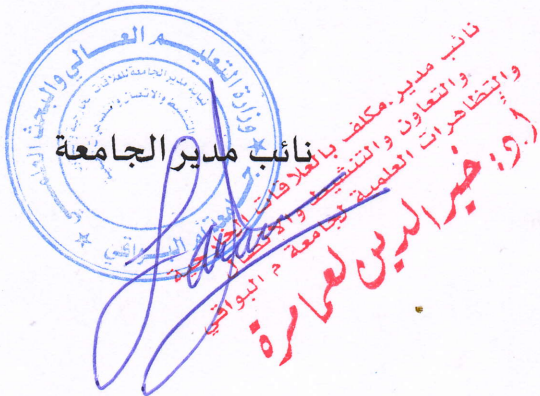 وزارة التعليم العالي والبحث العلمي
جامعة أم البواقي
نائب مدير الجامعة
نائب مدير مكلف بالعلاقات الخارجية
والتعاون والتنشيط والاتصال
والتظاهرات العلمية لجامعة أم البواقي
أ.د: خير الدين لعمامرة